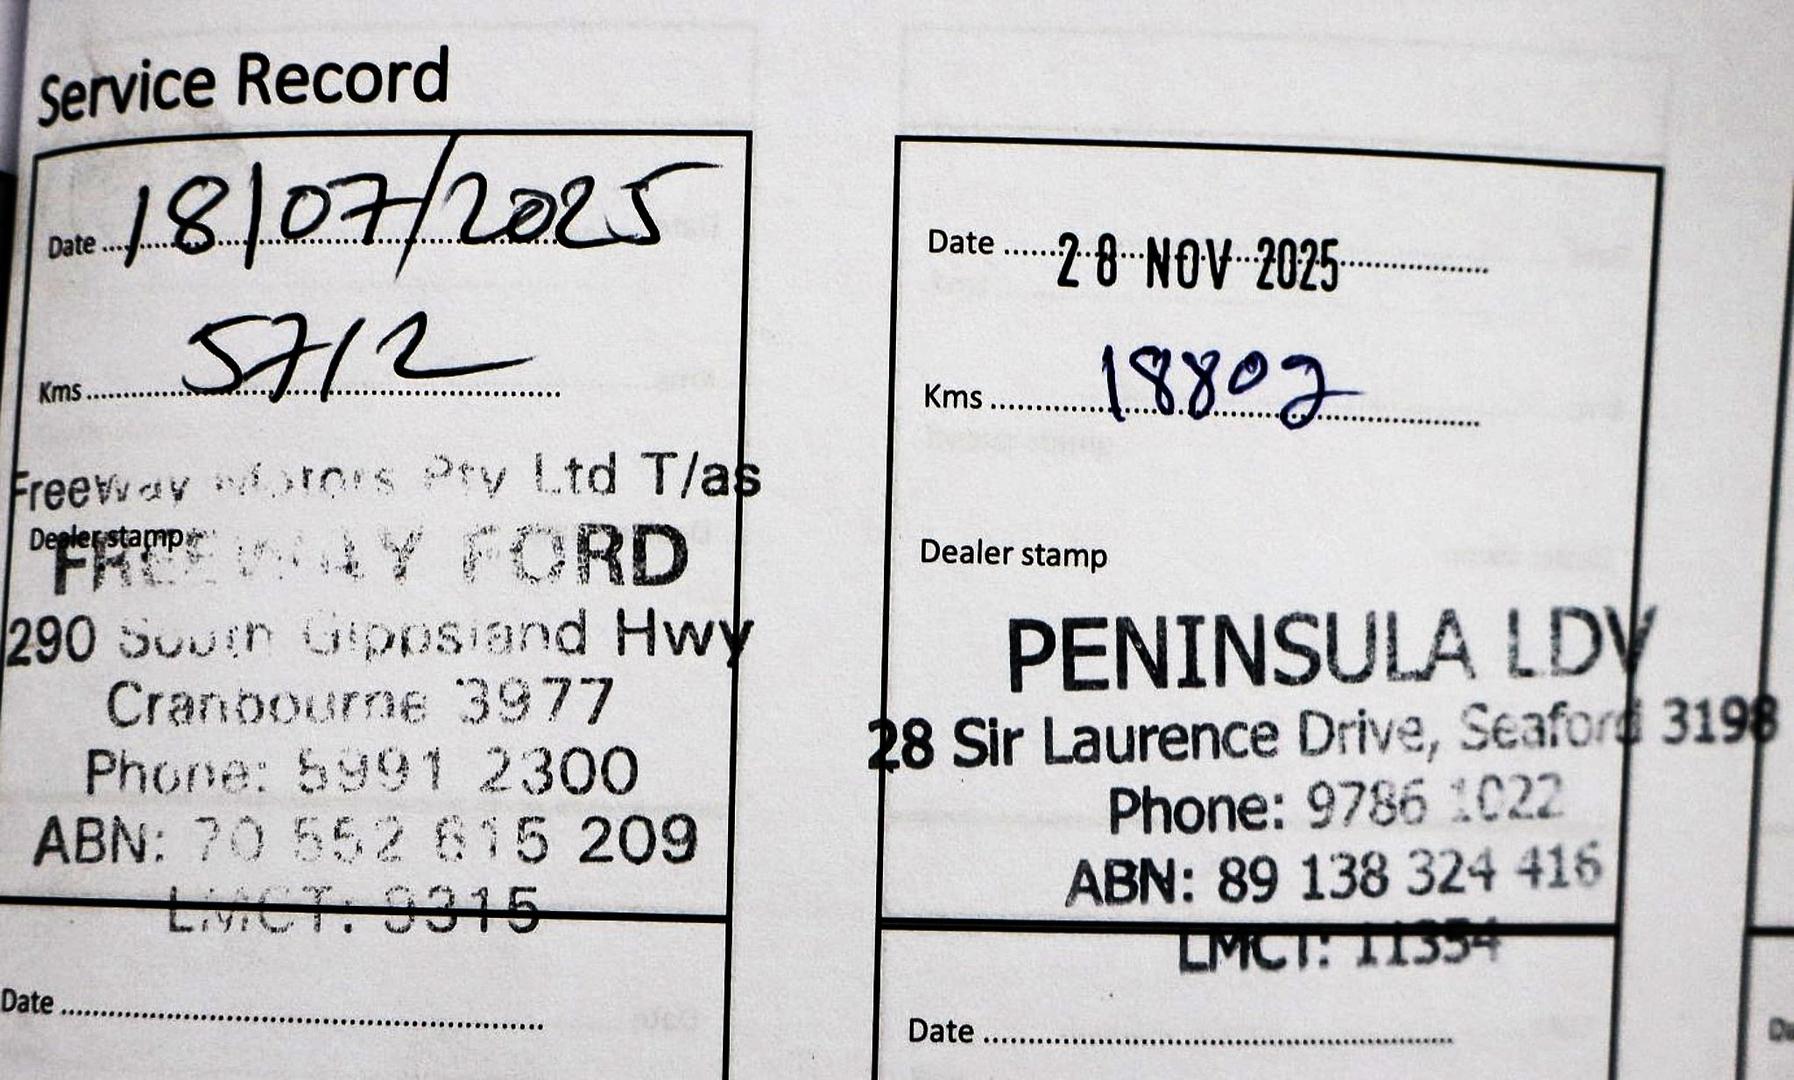 Service Record
Date 18/07/2025
Kms 5712
Freeway Motors Pty Ltd T/as
Dealer stamp
FREEWAY FORD
290 South Gippsland Hwy
Cranbourne 3977
Phone: 5991 2300
ABN: 70 552 615 209
LMCT: 9315
Date
Date 28 NOV 2025
Kms 18802
Dealer stamp
PENINSULA LDV
28 Sir Laurence Drive, Seaford 3198
Phone: 9786 1022
ABN: 89 138 324 416
LMCT: 11354
Date